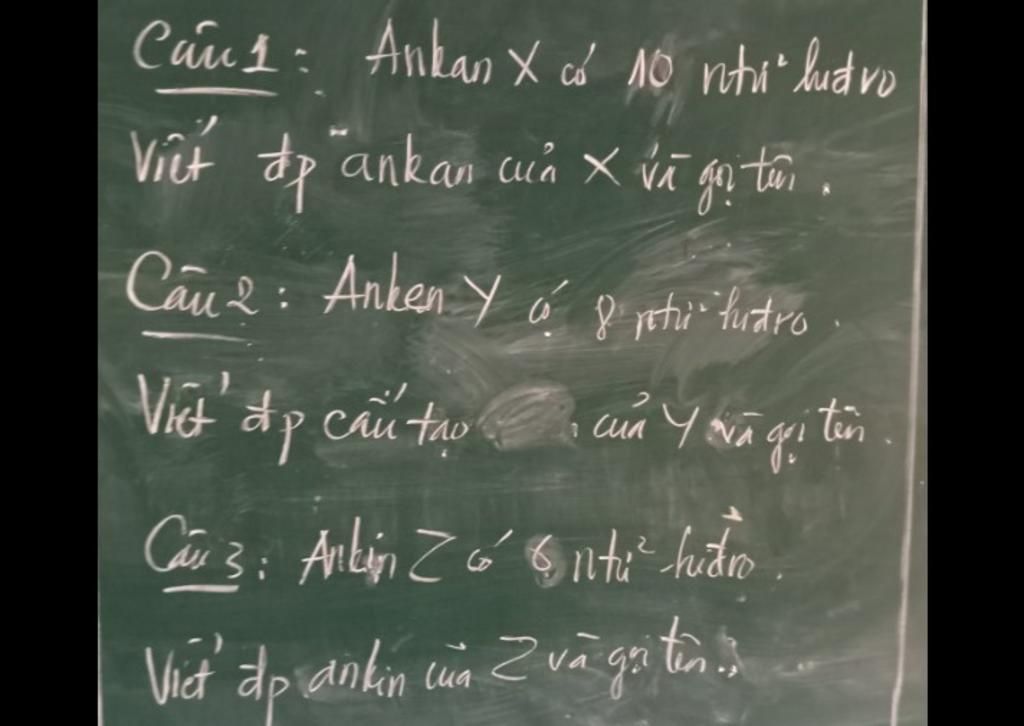 Câu 1: Ankan X có 10 ntử hidro
Viết đp ankan của X và gọi tên.
Câu 2: Anken Y có 8 ntử hidro.
Viết đp cấu tạo của Y và gọi tên.
Câu 3: Ankin Z có 6 ntử hidro.
Viết đp ankin của Z và gọi tên.